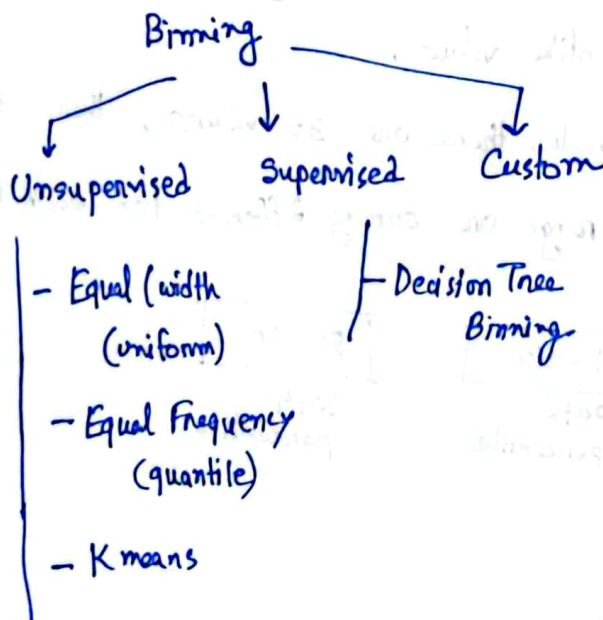 Binning
Unsupervised Supervised Custom
- Equal (width
(uniform)
- Equal Frequency
(quantile)
- Kmeans
- Decision Tree
Binning